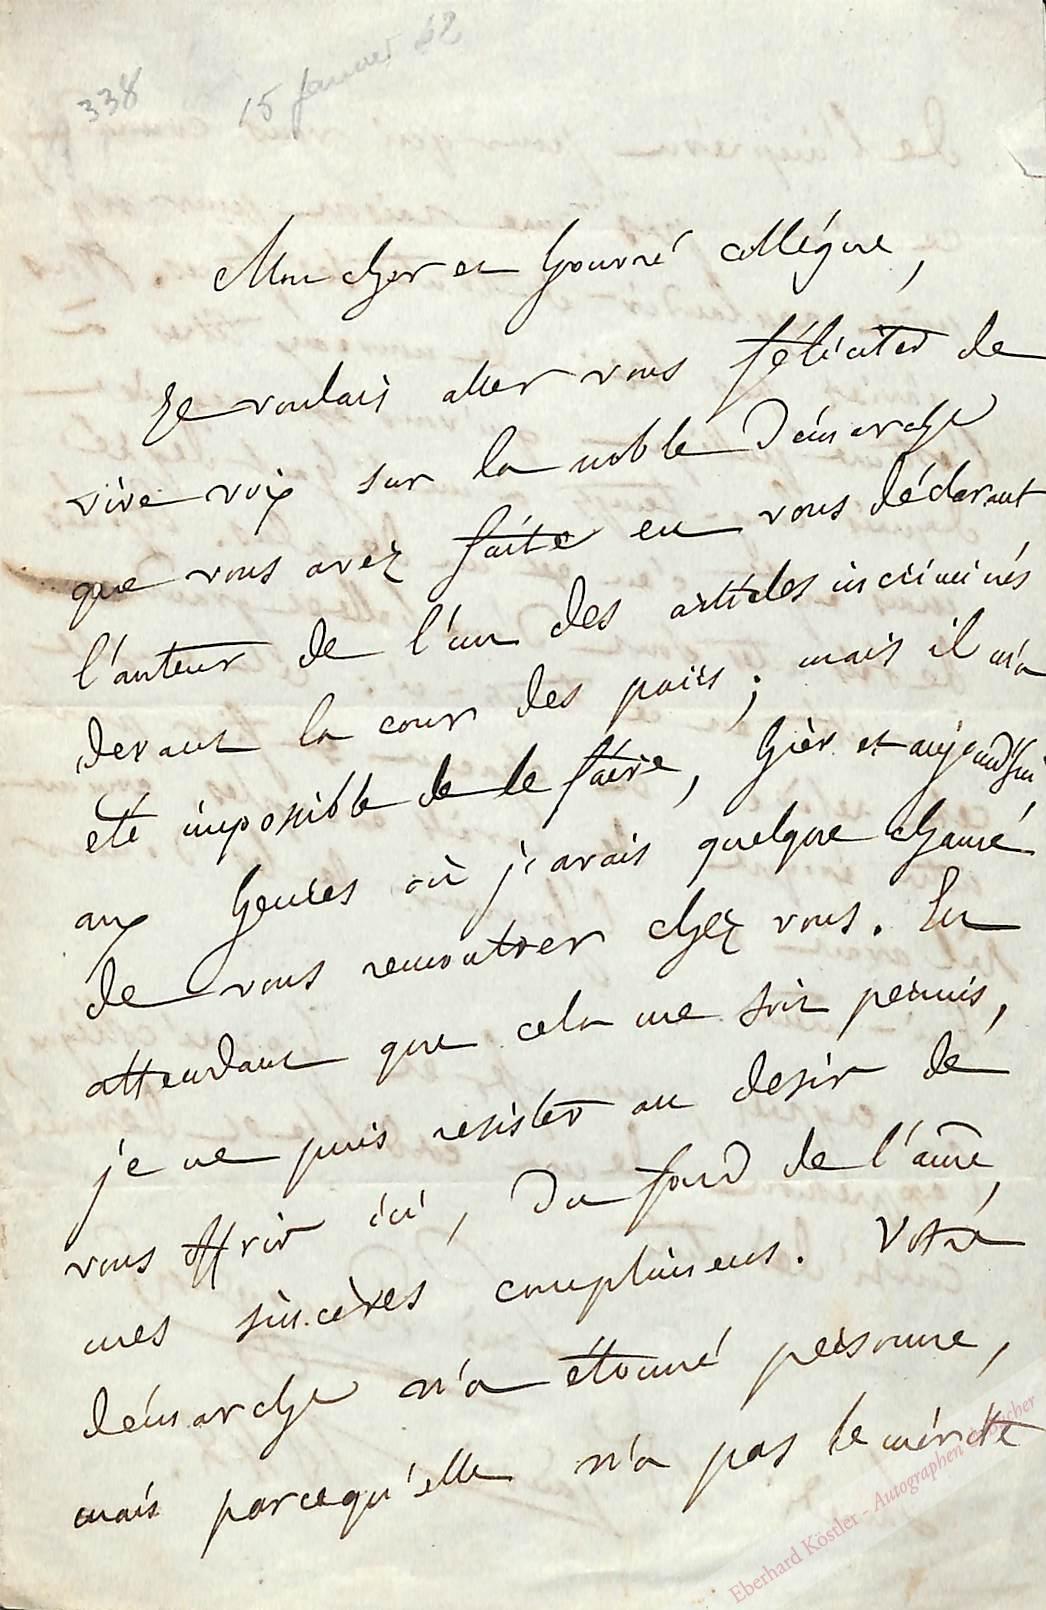 338
15 janvier 42
Mon cher et honoré collégue,
Je voulais aller vous féliciter de
vive voix sur la noble démarche
que vous avez faite en vous déclarant
l'auteur de l'un des articles incriminés
devant la cour des pairs ; mais il m'a
été impossible de le faire, hièr et aujourd'hui
aux heures où j'avais quelque chance
de vous rencontrer chez vous. En
attendant que cela me soit permis,
je ne puis resister au desir de
vous offrir ici, du fond de l'âme,
mes sincères complimens. Votre
démarche n'a étonné personne,
mais parcequ'elle n'a pas le mérite
Eberhard Köstler - Autographen & Bücher